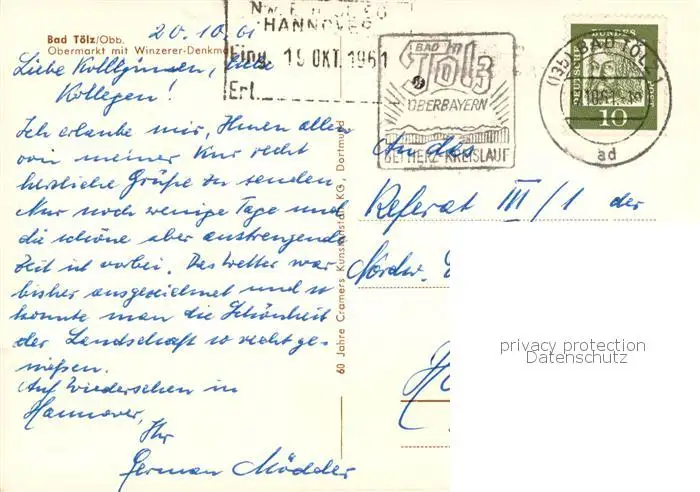 20.10.61
Bad Tölz/Obb.
Obermarkt mit Winzerer-Denkmal
HANNOVER
Eing. 19. OKT. 1961
Erl.
BAD
Tölz
OBERBAYERN
BEI HERZ-KREISLAUF
BAD TÖLZ 1
ad
DEUTSCHE BUNDESPOST
10
Liebe Kolleginnen, liebe
Kollegen!
Ich erlaube mir, Ihnen allen
von meiner Kur recht
herzliche Grüße zu senden.
Nur noch wenige Tage und
die schöne aber anstrengende
Zeit ist vorbei. Das Wetter war
bisher ausgezeichnet und so
konnte man die Schönheit
der Landschaft so recht ge-
nießen.
Auf Wiedersehen in
Hannover,
Ihr
German Mödder
60 Jahre Cramers Kunstanstalt KG, Dortmund
An das
Referat III/1 der
Nordw.
privacy protection
Datenschutz